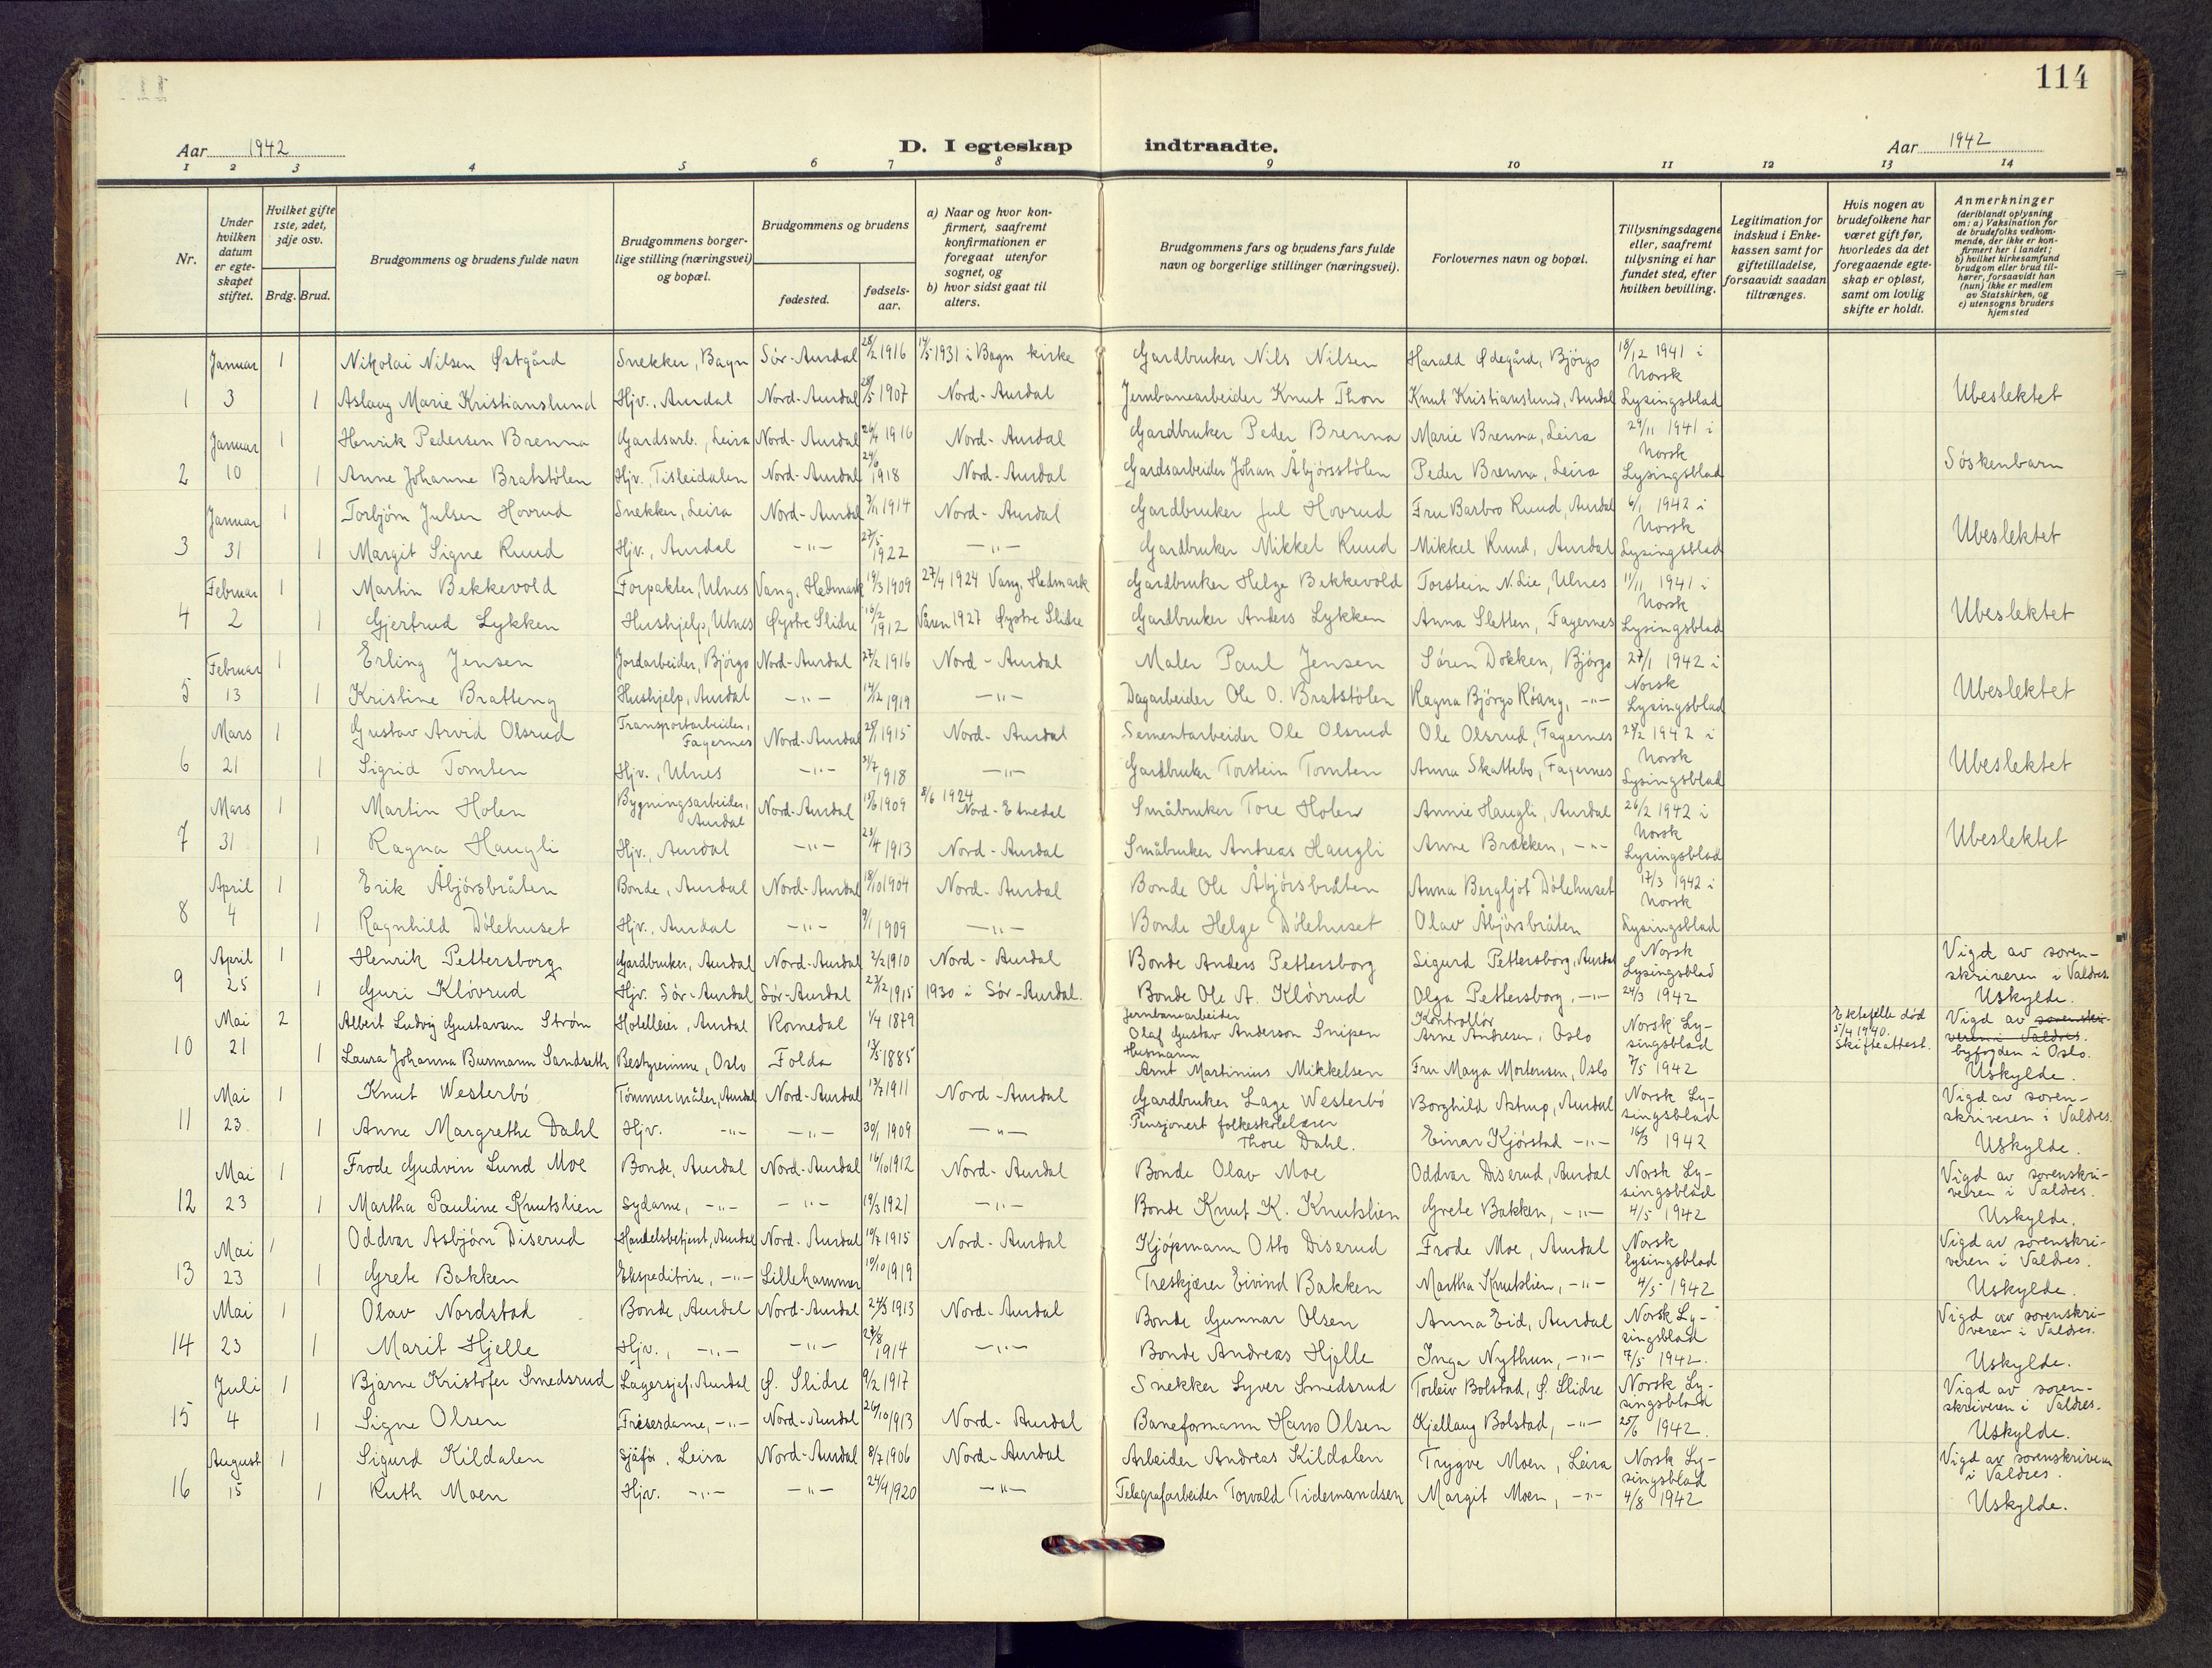 114
Aar 1942
D. I egteskap indtraadte.
Aar 1942
1 2 3 4 5 6 7 8 9 10 11 12 13 14
Nr.
Under hvilken datum er egteskapet stiftet.
Hvilket gifte 1ste, 2det, 3dje osv.
Brdg. Brud.
Brudgommens og brudens fulde navn
Brudgommens borgerlige stilling (næringsvei) og bopæl.
Brudgommens og brudens
fødested.
fødselsaar.
a) Naar og hvor konfirmert, saafremt konfirmationen er foregaat utenfor sognet, og
b) hvor sidst gaat til alters.
Brudgommens fars og brudens fars fulde navn og borgerlige stillinger (næringsvei).
Forlovernes navn og bopæl.
Tillysningsdagene eller, saafremt tillysning ei har fundet sted, efter hvilken bevilling.
Legitimation for indskud i Enkekassen samt for giftetilladelse, forsaavidt saadan tiltrænges.
Hvis nogen av brudefolkene har været gift før, hvorledes da det foregaaende egteskap er opløst, samt om lovlig skifte er holdt.
Anmerkninger
(deriblandt oplysning om: a) Vaksination for de brudefolks vedkommende, der ikke er konfirmert her i landet; b) hvilket kirkesamfund brudgom eller brud tilhører, forsaavidt han (hun) ikke er medlem av Statskirken, og c) utensogns bruders hjemsted
Januar 1 Nikolai Nilsen Østgård Snekker, Bagn Sør-Aurdal 28/2 1916 14/5 1931 i Bagn kirke Gardbruker Nils Nilsen Harald Ødegård, Bjørgo 18/12 1941 i Norsk
1 3 1 Aslaug Marie Kristianslund Hjv., Aurdal Nord-Aurdal 28/5 1907 Nord-Aurdal Jernbanearbeider Knut Thon Knut Kristianslund, Aurdal Lysingsblad Ubeslektet
Januar 1 Henrik Pedersen Brenna Gardsarb., Leira Nord-Aurdal 26/4 1916 Nord-Aurdal Gardbruker Peder Brenna Marie Brenna, Leira 29/11 1941 i Norsk
2 10 1 Anne Johanne Bratstølen Hjv., Tisleidalen Nord-Aurdal 24/6 1918 Nord-Aurdal Gardsarbeider Johan Åbjørsstølen Peder Brenna, Leira Lysingsblad Søskenbarn
Januar 1 Torbjørn Julsen Hovrud Snekker, Leira Nord-Aurdal 7/11 1914 Nord-Aurdal Gardbruker Jul Hovrud Fru Barbro Ruud, Aurdal 6/1 1942 i Norsk
3 31 1 Margit Signe Ruud Hjv., Aurdal -"- 27/5 1922 -"- Gardbruker Mikkel Ruud Mikkel Ruud, Aurdal Lysingsblad Ubeslektet
Februar 1 Martin Bekkevold Forpakter, Ulnes Vang, Hedmark 19/3 1909 27/4 1924 Vang, Hedmark Gardbruker Helge Bekkevold Torstein N. Lie, Ulnes 11/11 1941 i Norsk
4 2 1 Gjertrud Lykken Hushjelp, Ulnes Øystre Slidre 16/2 1912 Våren 1927 Øystre Slidre Gardbruker Anders Lykken Anna Sletten, Fagernes Lysingsblad Ubeslektet
Februar 1 Erling Jensen Jordarbeider, Bjørgo Nord-Aurdal 27/2 1916 Nord-Aurdal Maler Paul Jensen Søren Dokken, Bjørgo 27/1 1942 i Norsk
5 13 1 Kristine Bratteng Hushjelp, Aurdal -"- 17/12 1919 -"- Dagarbeider Ole O. Bratstølen Ragna Bjørgo Røang, -"- Lysingsblad Ubeslektet
Mars 1 Gustav Arvid Olsrud Transportarbeider, Fagernes Nord-Aurdal 28/1 1915 Nord-Aurdal Sementarbeider Ole Olsrud Ole Olsrud, Fagernes 28/2 1942 i Norsk
6 21 1 Sigrid Tomten Hjv., Ulnes -"- 31/7 1918 -"- Gardbruker Torstein Tomten Anna Skattebo, Fagernes Lysingsblad Ubeslektet
Mars 1 Martin Holen Bygningsarbeider, Aurdal Nord-Aurdal 15/6 1909 8/6 1924 Nord-Etnedal Småbruker Tore Holen Annie Haugli, Aurdal 26/2 1942 i Norsk
7 31 1 Ragna Haugli Hjv., Aurdal -"- 23/4 1913 Nord-Aurdal Småbruker Andreas Haugli Anne Brakken, -"- Lysingsblad Ubeslektet
April 1 Erik Åbjørsbråten Bonde, Aurdal Nord-Aurdal 18/10 1904 Nord-Aurdal Bonde Ole Åbjørsbråten Anna Bergljot Dølehuset 17/3 1942 i Norsk
8 4 1 Ragnhild Dølehuset Hjv., Aurdal -"- 9/1 1909 -"- Bonde Helge Dølehuset Olav Åbjørsbråten Lysingsblad
April 1 Henrik Pettersborg Gardbruker, Aurdal Nord-Aurdal 2/2 1910 Nord-Aurdal Bonde Anders Pettersborg Sigurd Pettersborg, Aurdal Norsk Lysingsblad Vigd av sorenskriveren i Valdres.
9 25 1 Guri Kløvrud Hjv. Sør-Aurdal Sør-Aurdal 23/12 1915 1930 i Sør-Aurdal. Bonde Ole A. Kløvrud Olga Pettersborg, -"- 24/3 1942 Uskylde.
Mai 2 Albert Ludvig Gustavsen Strøm Hotelleier, Aurdal Romedal 1/4 1879 Jernbanearbeider Olaf Gustav Anderson Snipen Kontrollør Arne Andresen, Oslo Norsk Lysingsblad Ektefelle død 5/4 1940. Skifteattest. Vigd av sorenskriveren i Valdres.
10 21 1 Laura Johanna Burmann Sandseth Bestyrerinne, Oslo Folda 13/5 1885 Husmann Arnt Martinius Mikkelsen Fru Maya Mortensen, Oslo 7/5 1942 byfogden i Oslo. Uskylde.
Mai 1 Knut Westerbø Tømmermåler, Aurdal Nord-Aurdal 13/7 1911 Nord-Aurdal Gardbruker Lage Westerbø Borghild Astrup, Aurdal Norsk Lysingsblad Vigd av sorenskriveren i Valdres.
11 23 1 Anne Margrethe Dahl Hjv. -"- -"- 30/1 1909 -"- Pensjonert folkeskolelærer Thore Dahl. Einar Kjørstad -"- 16/3 1942 Uskylde.
Mai 1 Frode Gudvin Lund Moe Bonde, Aurdal Nord-Aurdal 16/10 1912 Nord-Aurdal Bonde Olav Moe Oddvar Diserud, Aurdal Norsk Lysingsblad Vigd av sorenskriveren i Valdres.
12 23 1 Martha Pauline Knutslien Sydame, -"- -"- 19/3 1921 -"- Bonde Knut K. Knutslien Grete Bakken, -"- 4/5 1942 Uskylde.
Mai 1 Oddvar Asbjørn Diserud Handelsbetjent, Aurdal Nord-Aurdal 19/7 1915 Nord-Aurdal Kjøpmann Otto Diserud Frode Moe, Aurdal Norsk Lysingsblad Vigd av sorenskriveren i Valdres.
13 23 1 Grete Bakken Ekspeditrise, -"- Lillehammer 19/10 1919 Treskjærer Eivind Bakken Martha Knutslien, -"- 4/5 1942 Uskylde.
Mai 1 Olav Nordstad Bonde, Aurdal Nord-Aurdal 24/3 1913 Nord-Aurdal Bonde Gunnar Olsen Anna Eid, Aurdal Norsk Lysingsblad Vigd av sorenskriveren i Valdres.
14 23 1 Marit Hjelle Hjv., -"- -"- 27/8 1914 -"- Bonde Andreas Hjelle Inga Nythun, -"- 7/5 1942. Uskylde.
Juli 1 Bjarne Kristofer Smedsrud Lagersjef, Aurdal Ø. Slidre 9/2 1917 Snekker Syver Smedsrud Torleiv Bolstad, Ø. Slidre Norsk Lysingsblad Vigd av sorenskriveren i Valdres.
15 4 1 Signe Olsen Friserdame, -"- Nord-Aurdal 26/10 1913 Nord-Aurdal Baneformann Hans Olsen Kjellaug Bolstad, -"- 25/6 1942. Uskylde.
August 1 Sigurd Kildalen Sjåfør, Leira Nord-Aurdal 8/7 1906 Nord-Aurdal Arbeider Andreas Kildalen Trygve Moen, Leira Norsk Lysingsblad Vigd av sorenskriveren i Valdres.
16 15 1 Ruth Moen Hjv. -"- -"- 24/4 1920 -"- Telegrafarbeider Torvald Tidemandsen Margit Moen, -"- 4/8 1942 Uskylde.